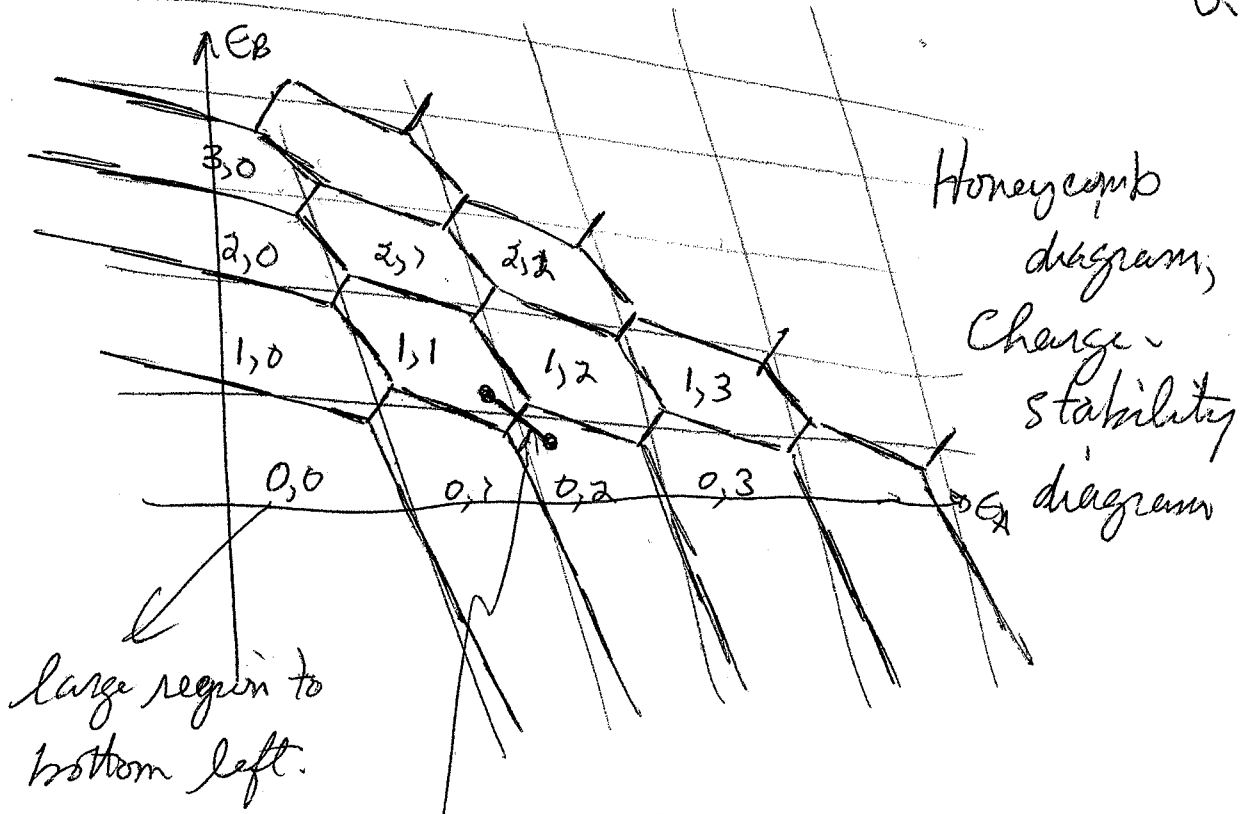 ЄB
3,0
2,0
2,1
2,2
1,0
1,1
1,2
1,3
0,0
0,1
0,2
0,3
ЄA
Honeycomb
diagram,
Charge-
stability
diagram
large region to
bottom left.